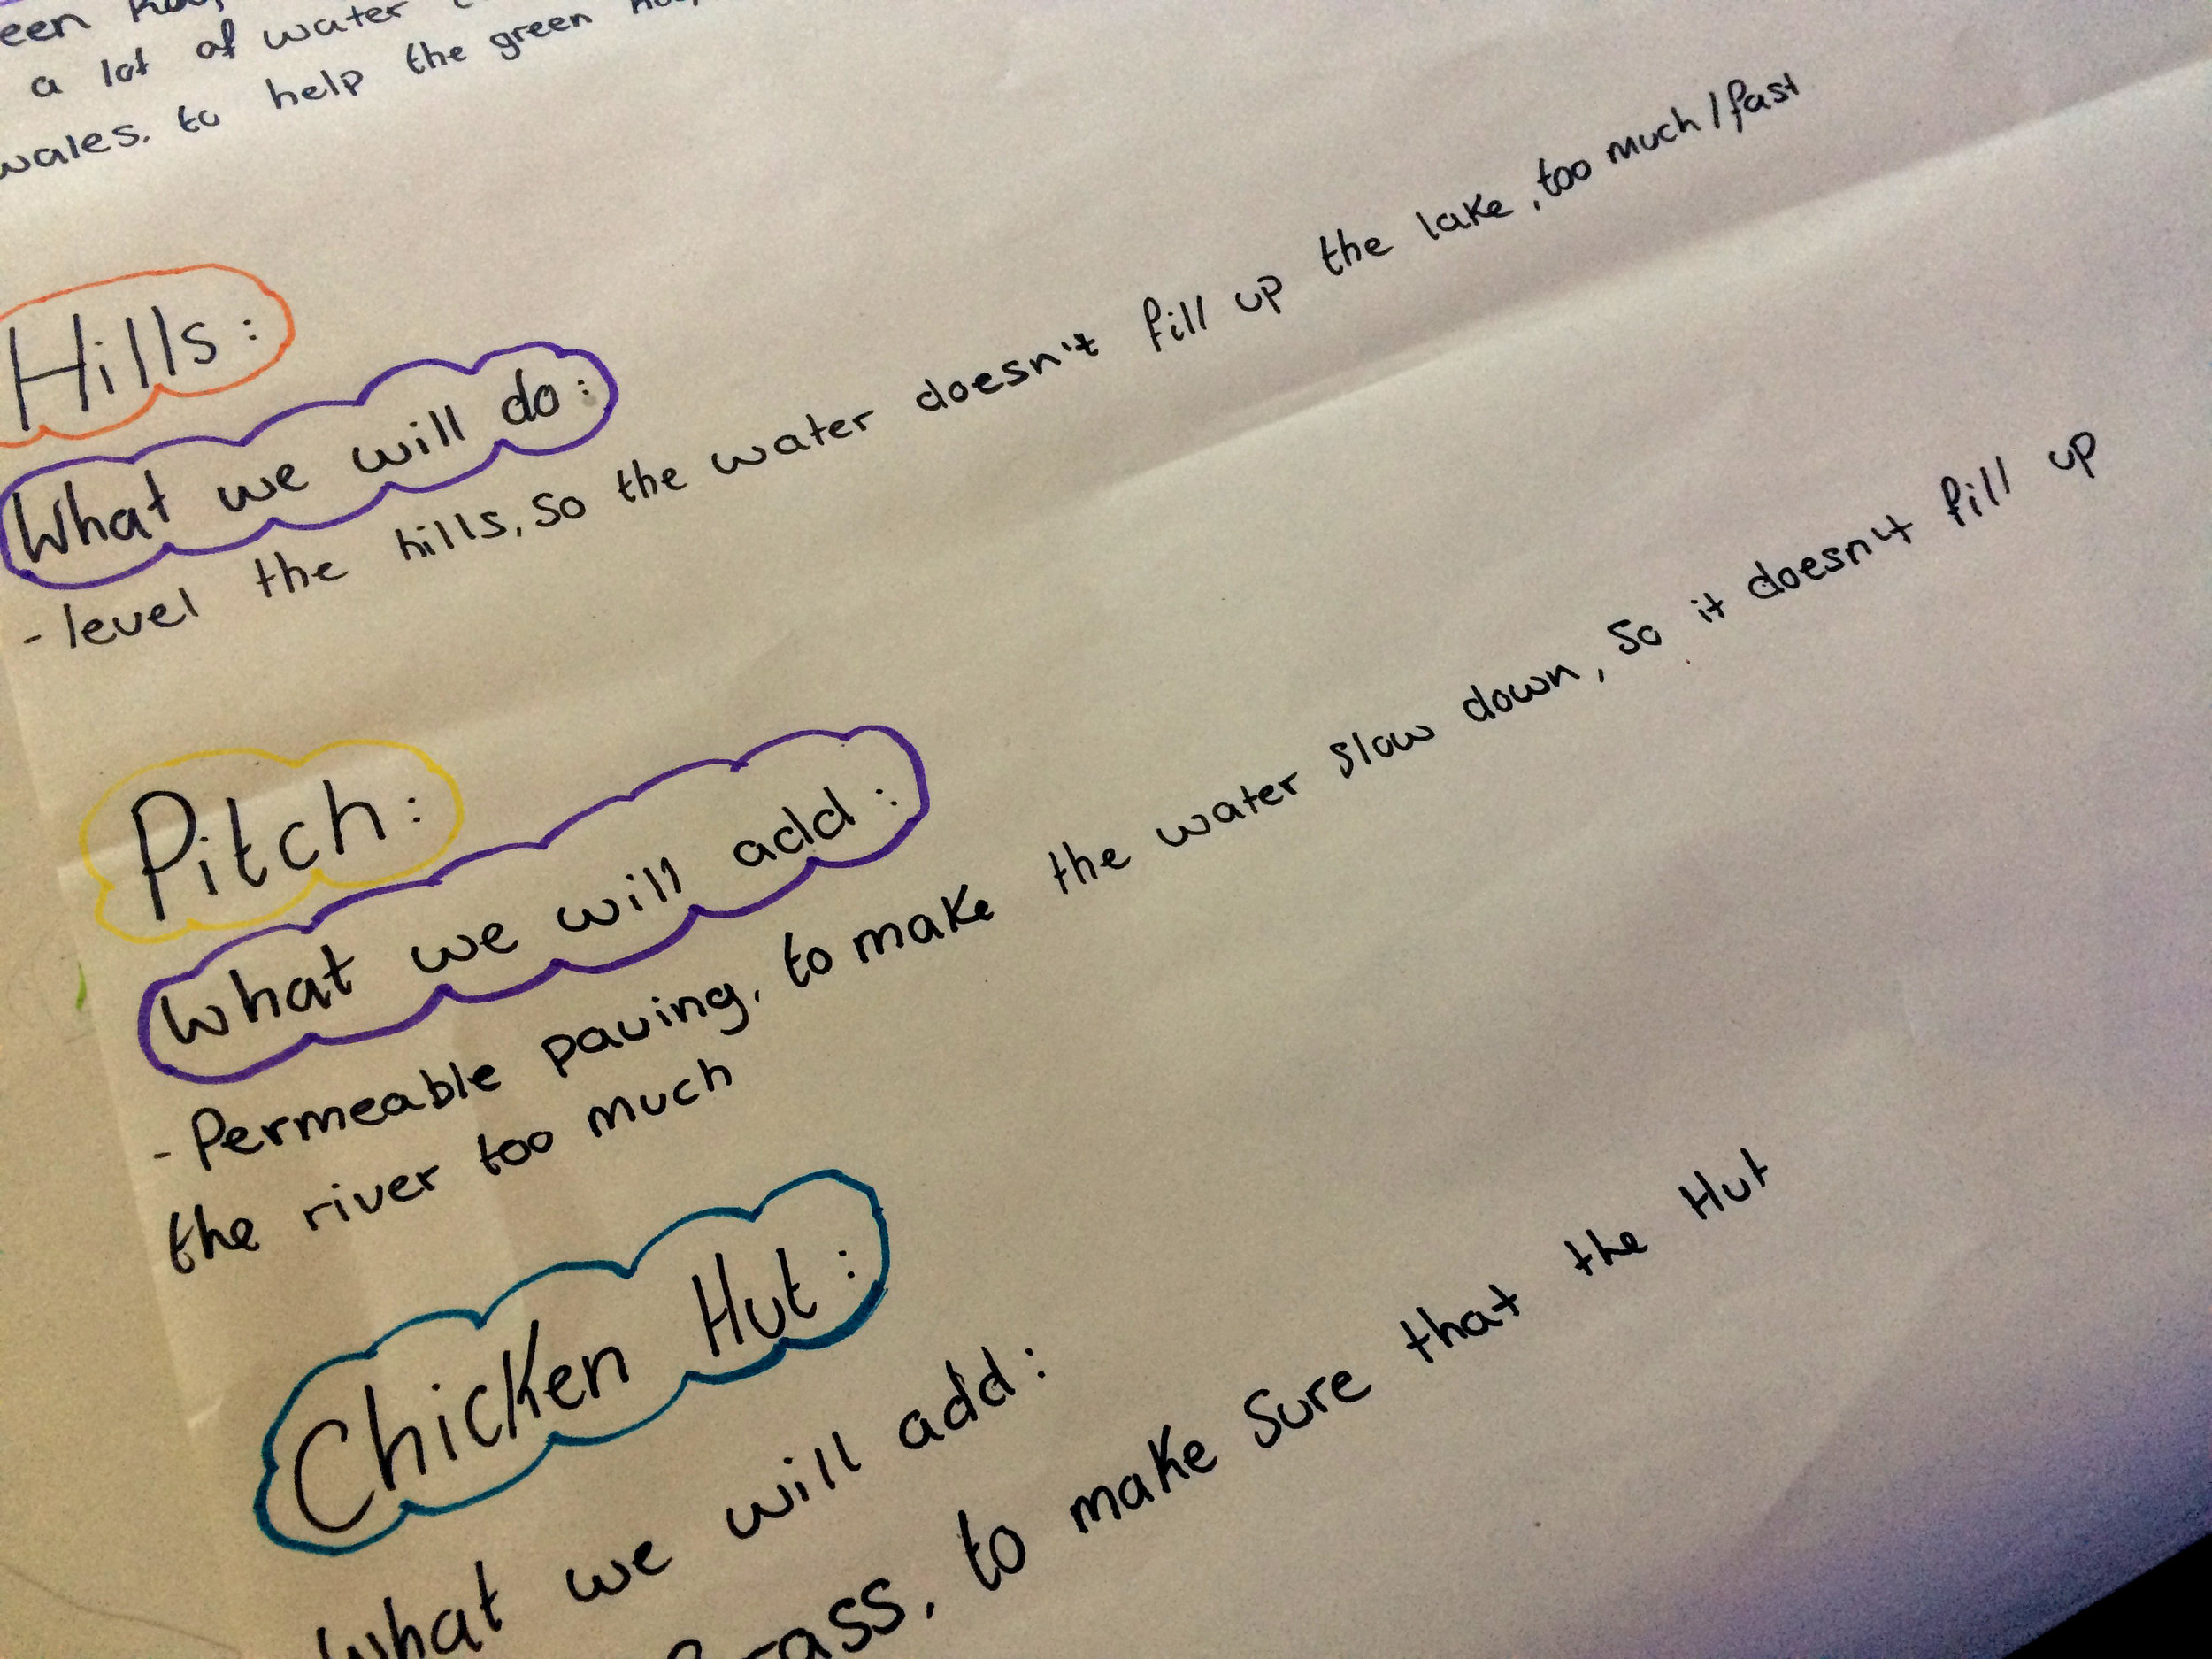 a lot of water
to help the green
Hills:
What we will do:
- level the hills, so the water doesn't fill up the lake, too much/fast
Pitch:
What we will add:
- Permeable paving, to make the water slow down, so it doesn't fill up
the river too much
Chicken Hut:
What we will add:
to make sure that the Hut